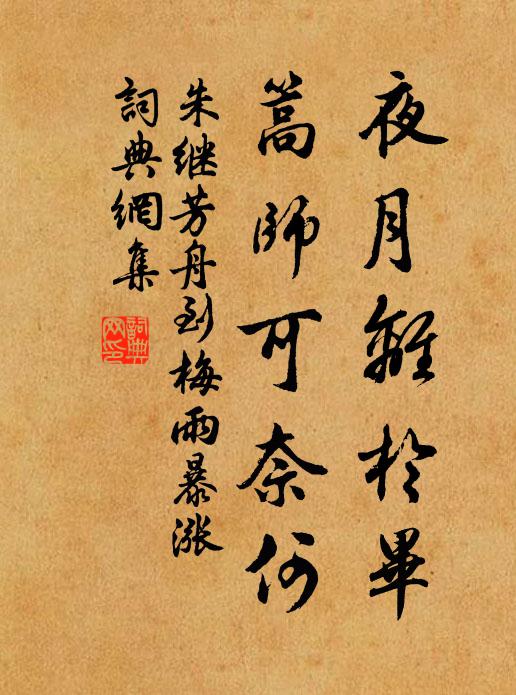 夜月離於畢
篙師可奈何
朱继芳舟到梅雨暴漲
詞典網集
詞典网印